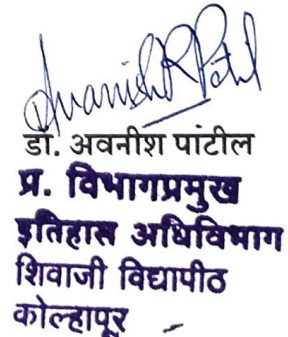 Avanish R Patil
डॉ. अवनीश पाटील
प्र. विभागप्रमुख
इतिहास अधिविभाग
शिवाजी विद्यापीठ
कोल्हापूर